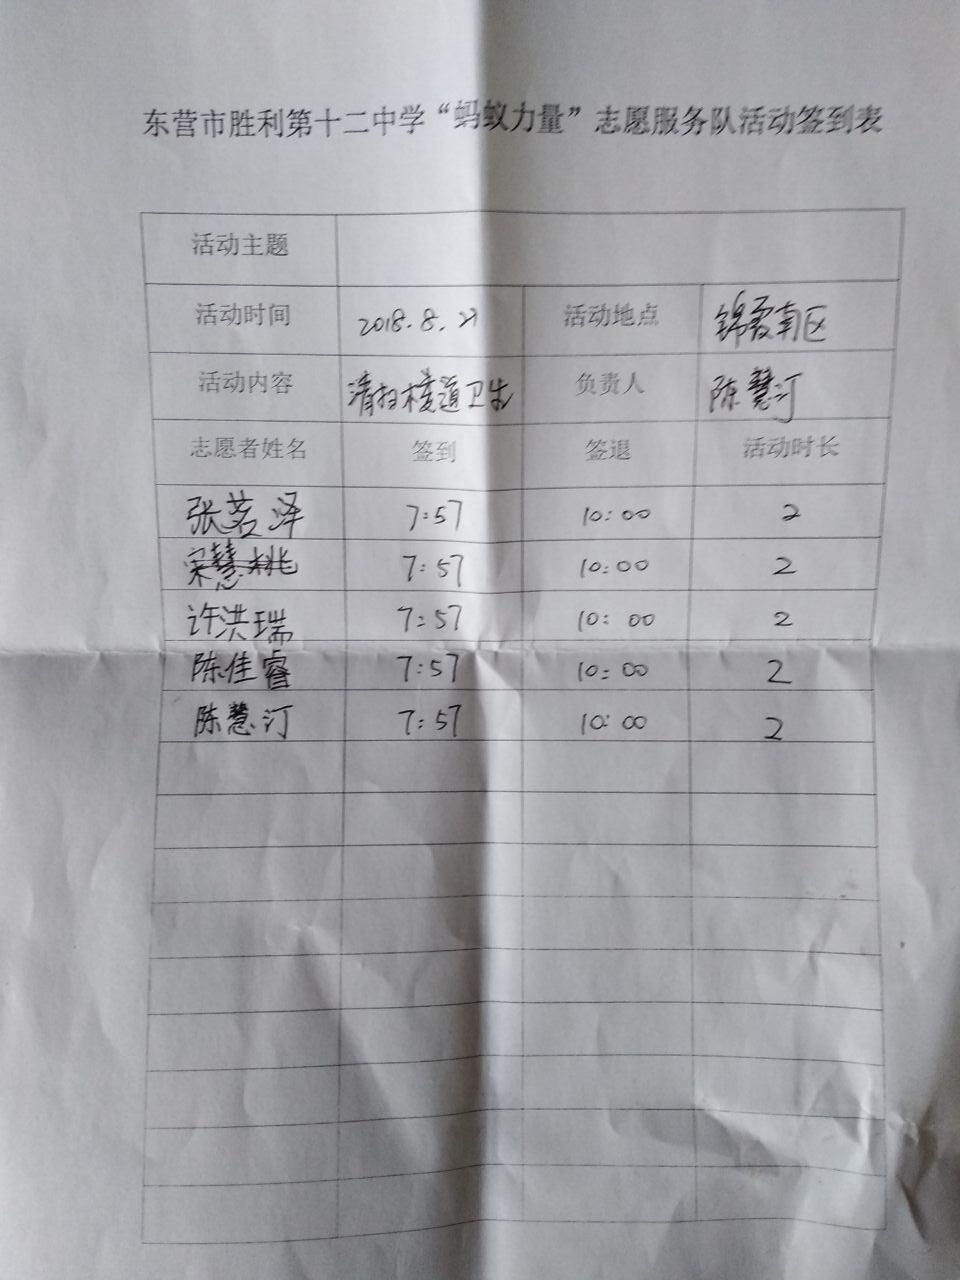 东营市胜利第十二中学“蚂蚁力量”志愿服务队活动签到表
活动主题
活动时间 2018.8.21 活动地点 锦霞南区
活动内容 清扫楼道卫生 负责人 陈慧汀
志愿者姓名 签到 签退 活动时长
张茗泽 7:57 10:00 2
宋慧桃 7:57 10:00 2
许洪瑞 7:57 10:00 2
陈佳睿 7:57 10:00 2
陈慧汀 7:57 10:00 2